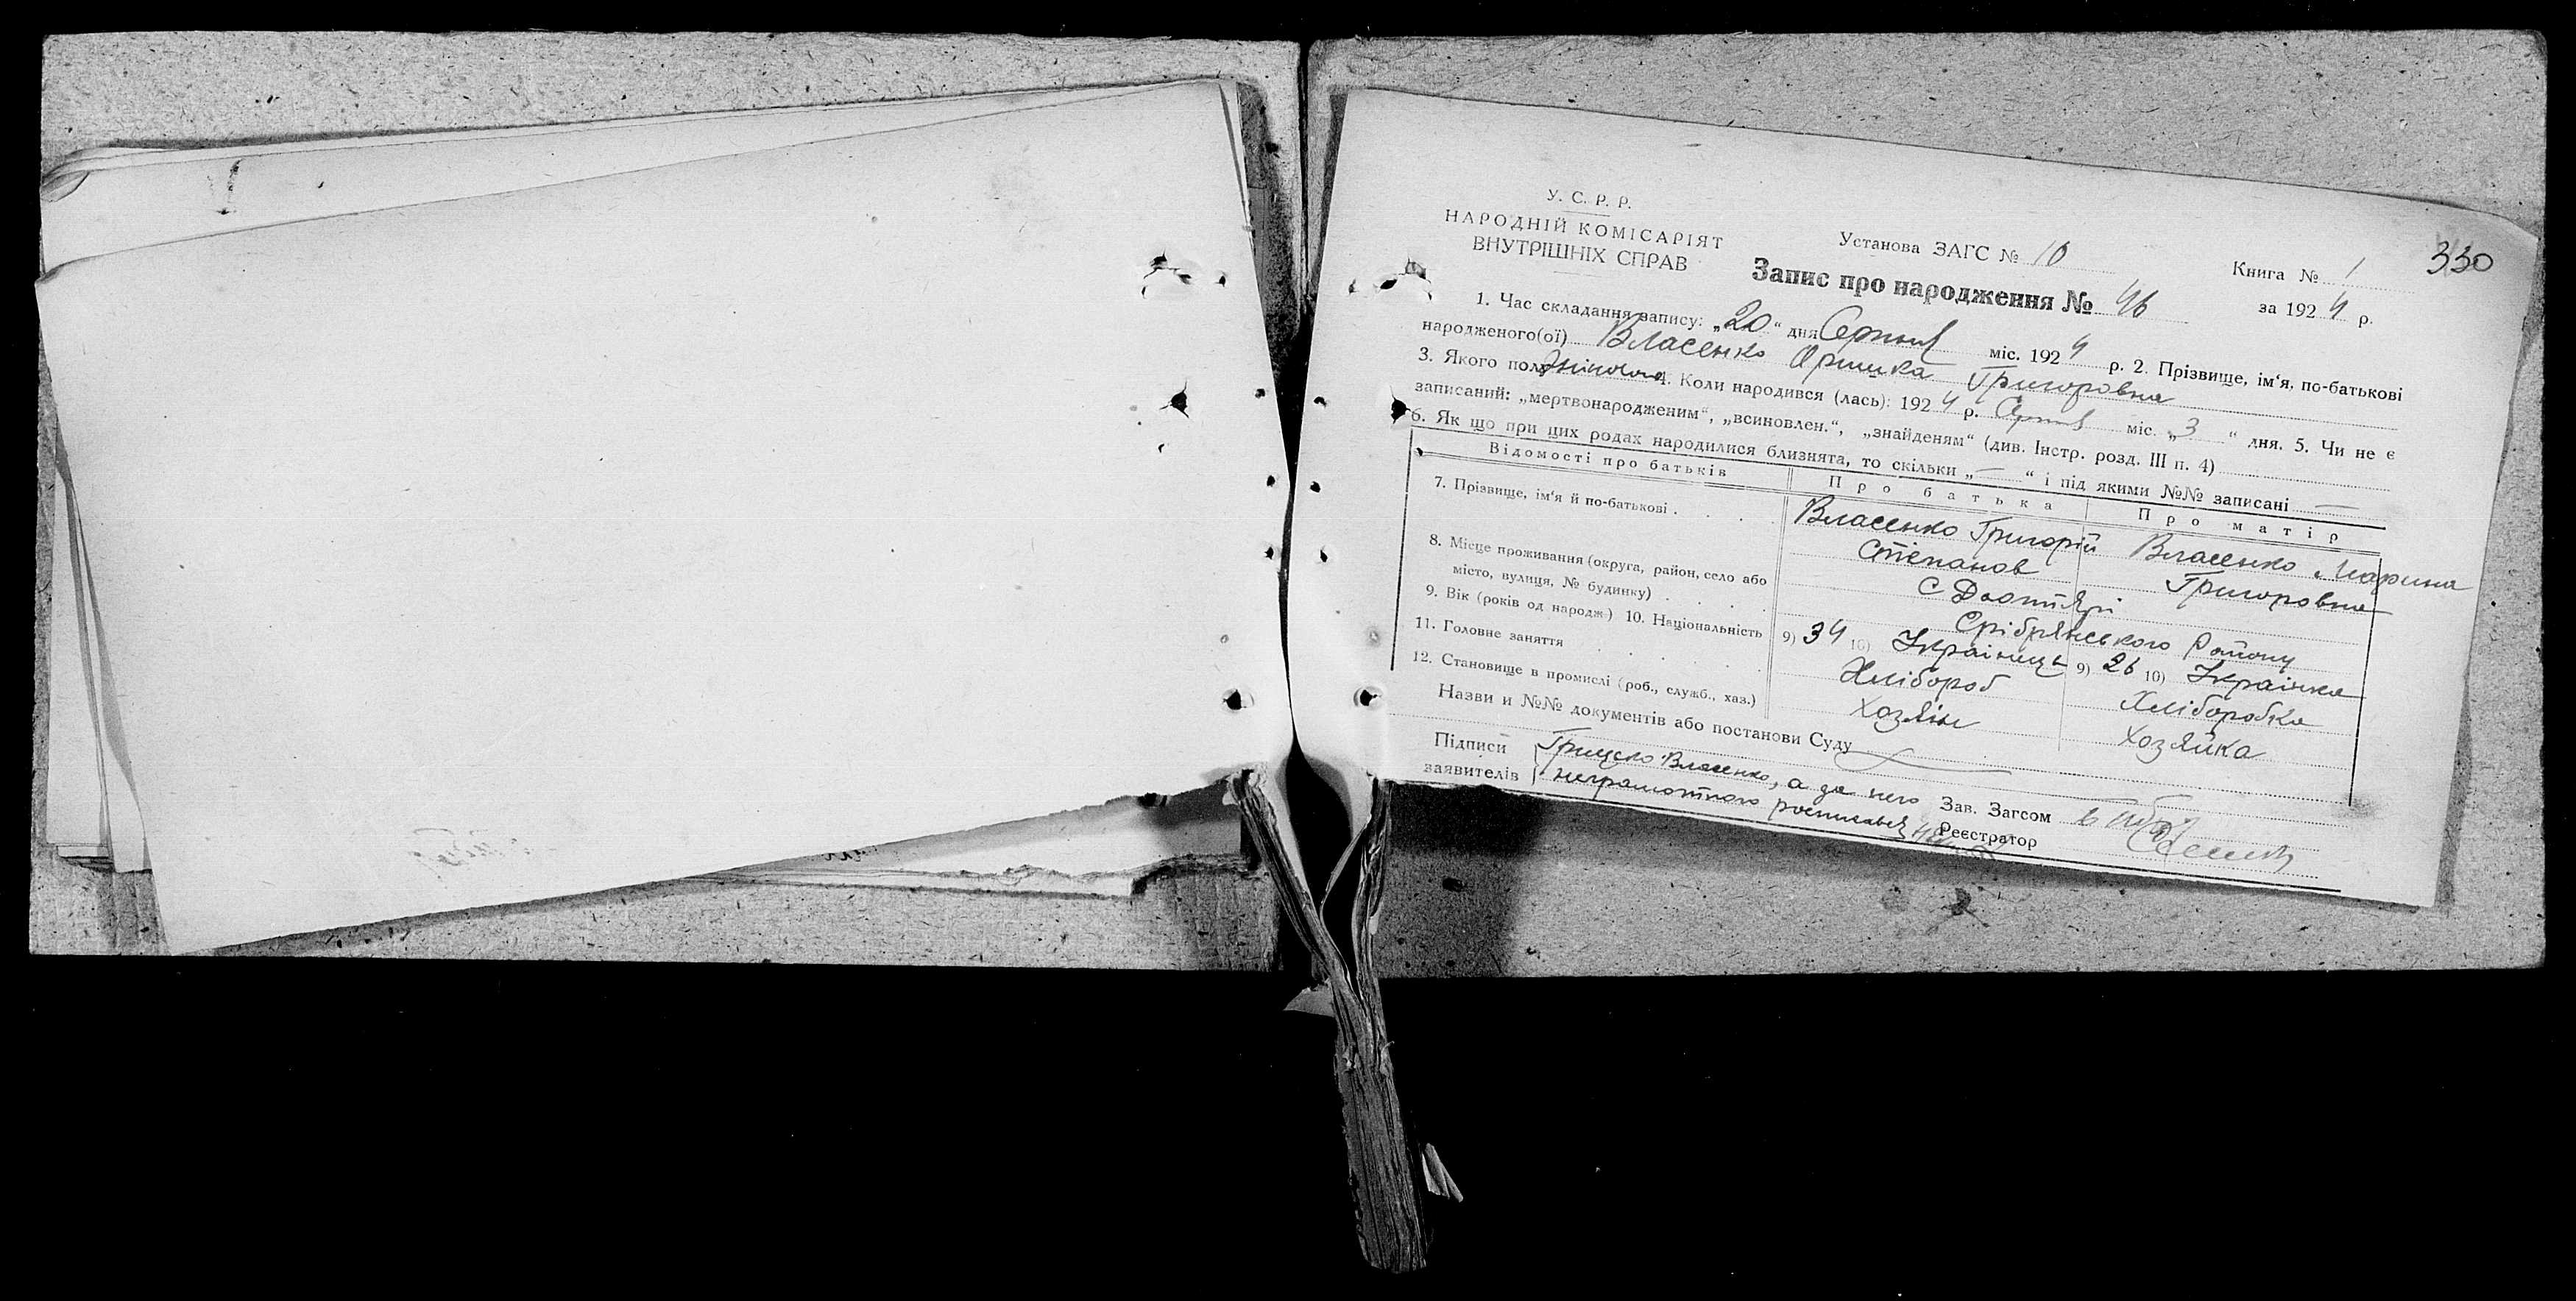 330
У. С. Р. Р.
НАРОДНІЙ КОМІСАРІЯТ
ВНУТРІШНІХ СПРАВ
Установа ЗАГС № 10
Книга № 1
Запис про народження № 46
за 1924 р.
1. Час складання запису: „20“ дня Серпня міс. 1924 р. 2. Прізвище, ім‘я, по-батькові
народженого(ої) Власенко Оришка Григоровна
3. Якого полу 4. Коли народився (лась): 1924 р. Серпня міс. „3“ дня. 5. Чи не є
записаний: „мертвонародженим“, „всиновлен.“, „знайденям“ (див. Інстр. розд. III п. 4)
6. Як що при цих родах народилися близнята, то скільки „—“ і під якими №№ записані —
Відомості про батьків
Про батька
Про матір
7. Прізвище, ім‘я й по-батькові
Власенко Григорій
Степанов
Власенко Марина
Григоровна
8. Місце проживання (округа, район, село або
місто, вулиця, № будинку)
с Дѣгтярі
Срібрянського Району
9. Вік (років од народж) 10. Національність
9) 34 10) Українець
9) 26 10) Українка
11. Головне заняття
Хлібороб
Хліборобка
12. Становище в промислі (роб., служб., хаз.)
Хозяін
Хозяйка
Назви и №№ документів або постанови Суду
Підписи
заявителів
Грицько Власенко, а за него
неграмотного росписався
Зав. Загсом
Реєстратор